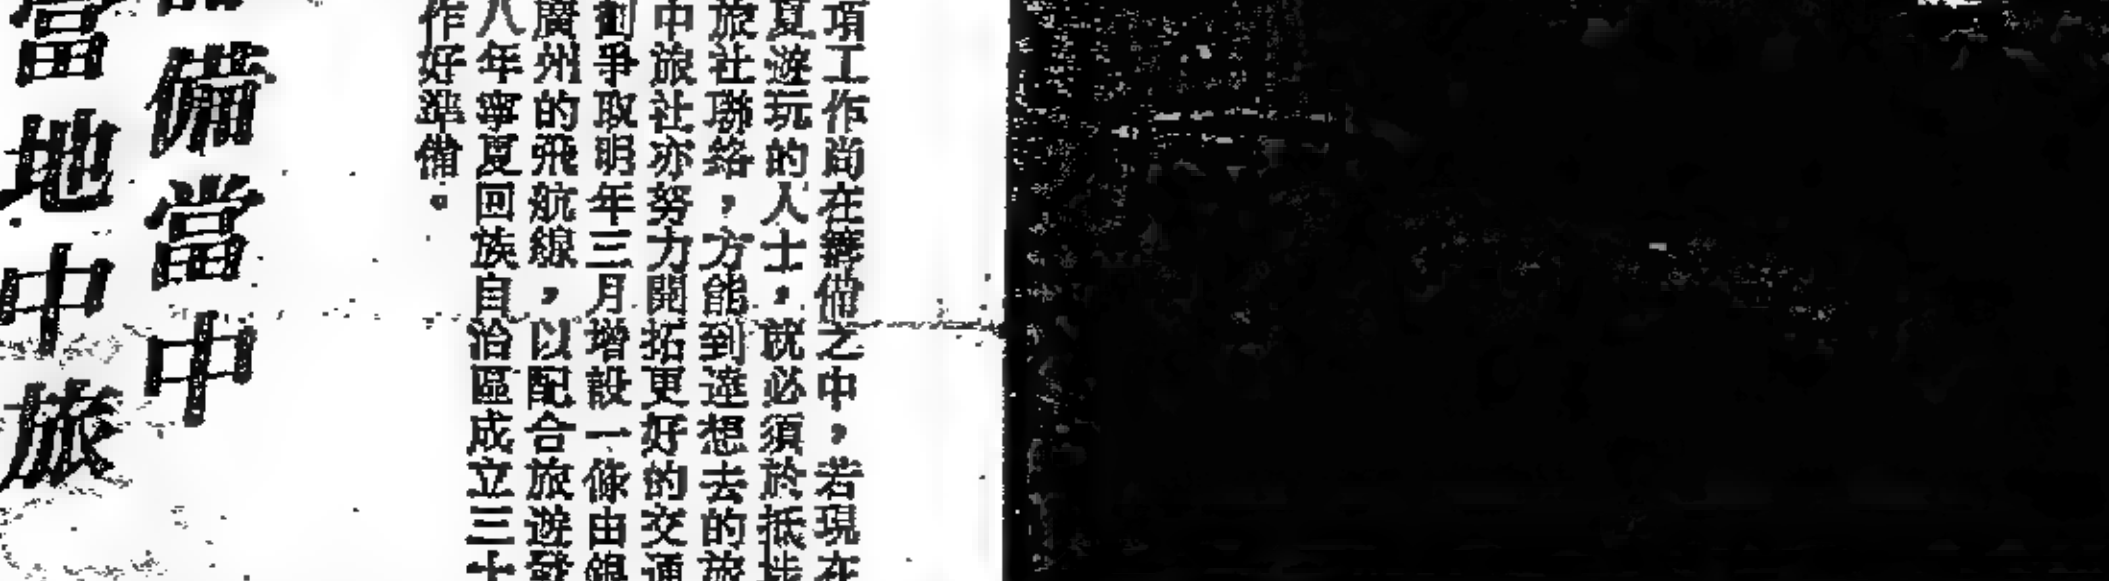 項工作尚在籌備之中，若現在
夏遊玩的人士，就必須於抵
旅社聯絡，方能到達想去的旅
中旅社亦努力開拓更好的交通
劃爭取明年三月增設一條由銀
廣州的飛航線，以配合旅遊發
八年寧夏回族自治區成立三十
作好準備。
備當中
當地中旅